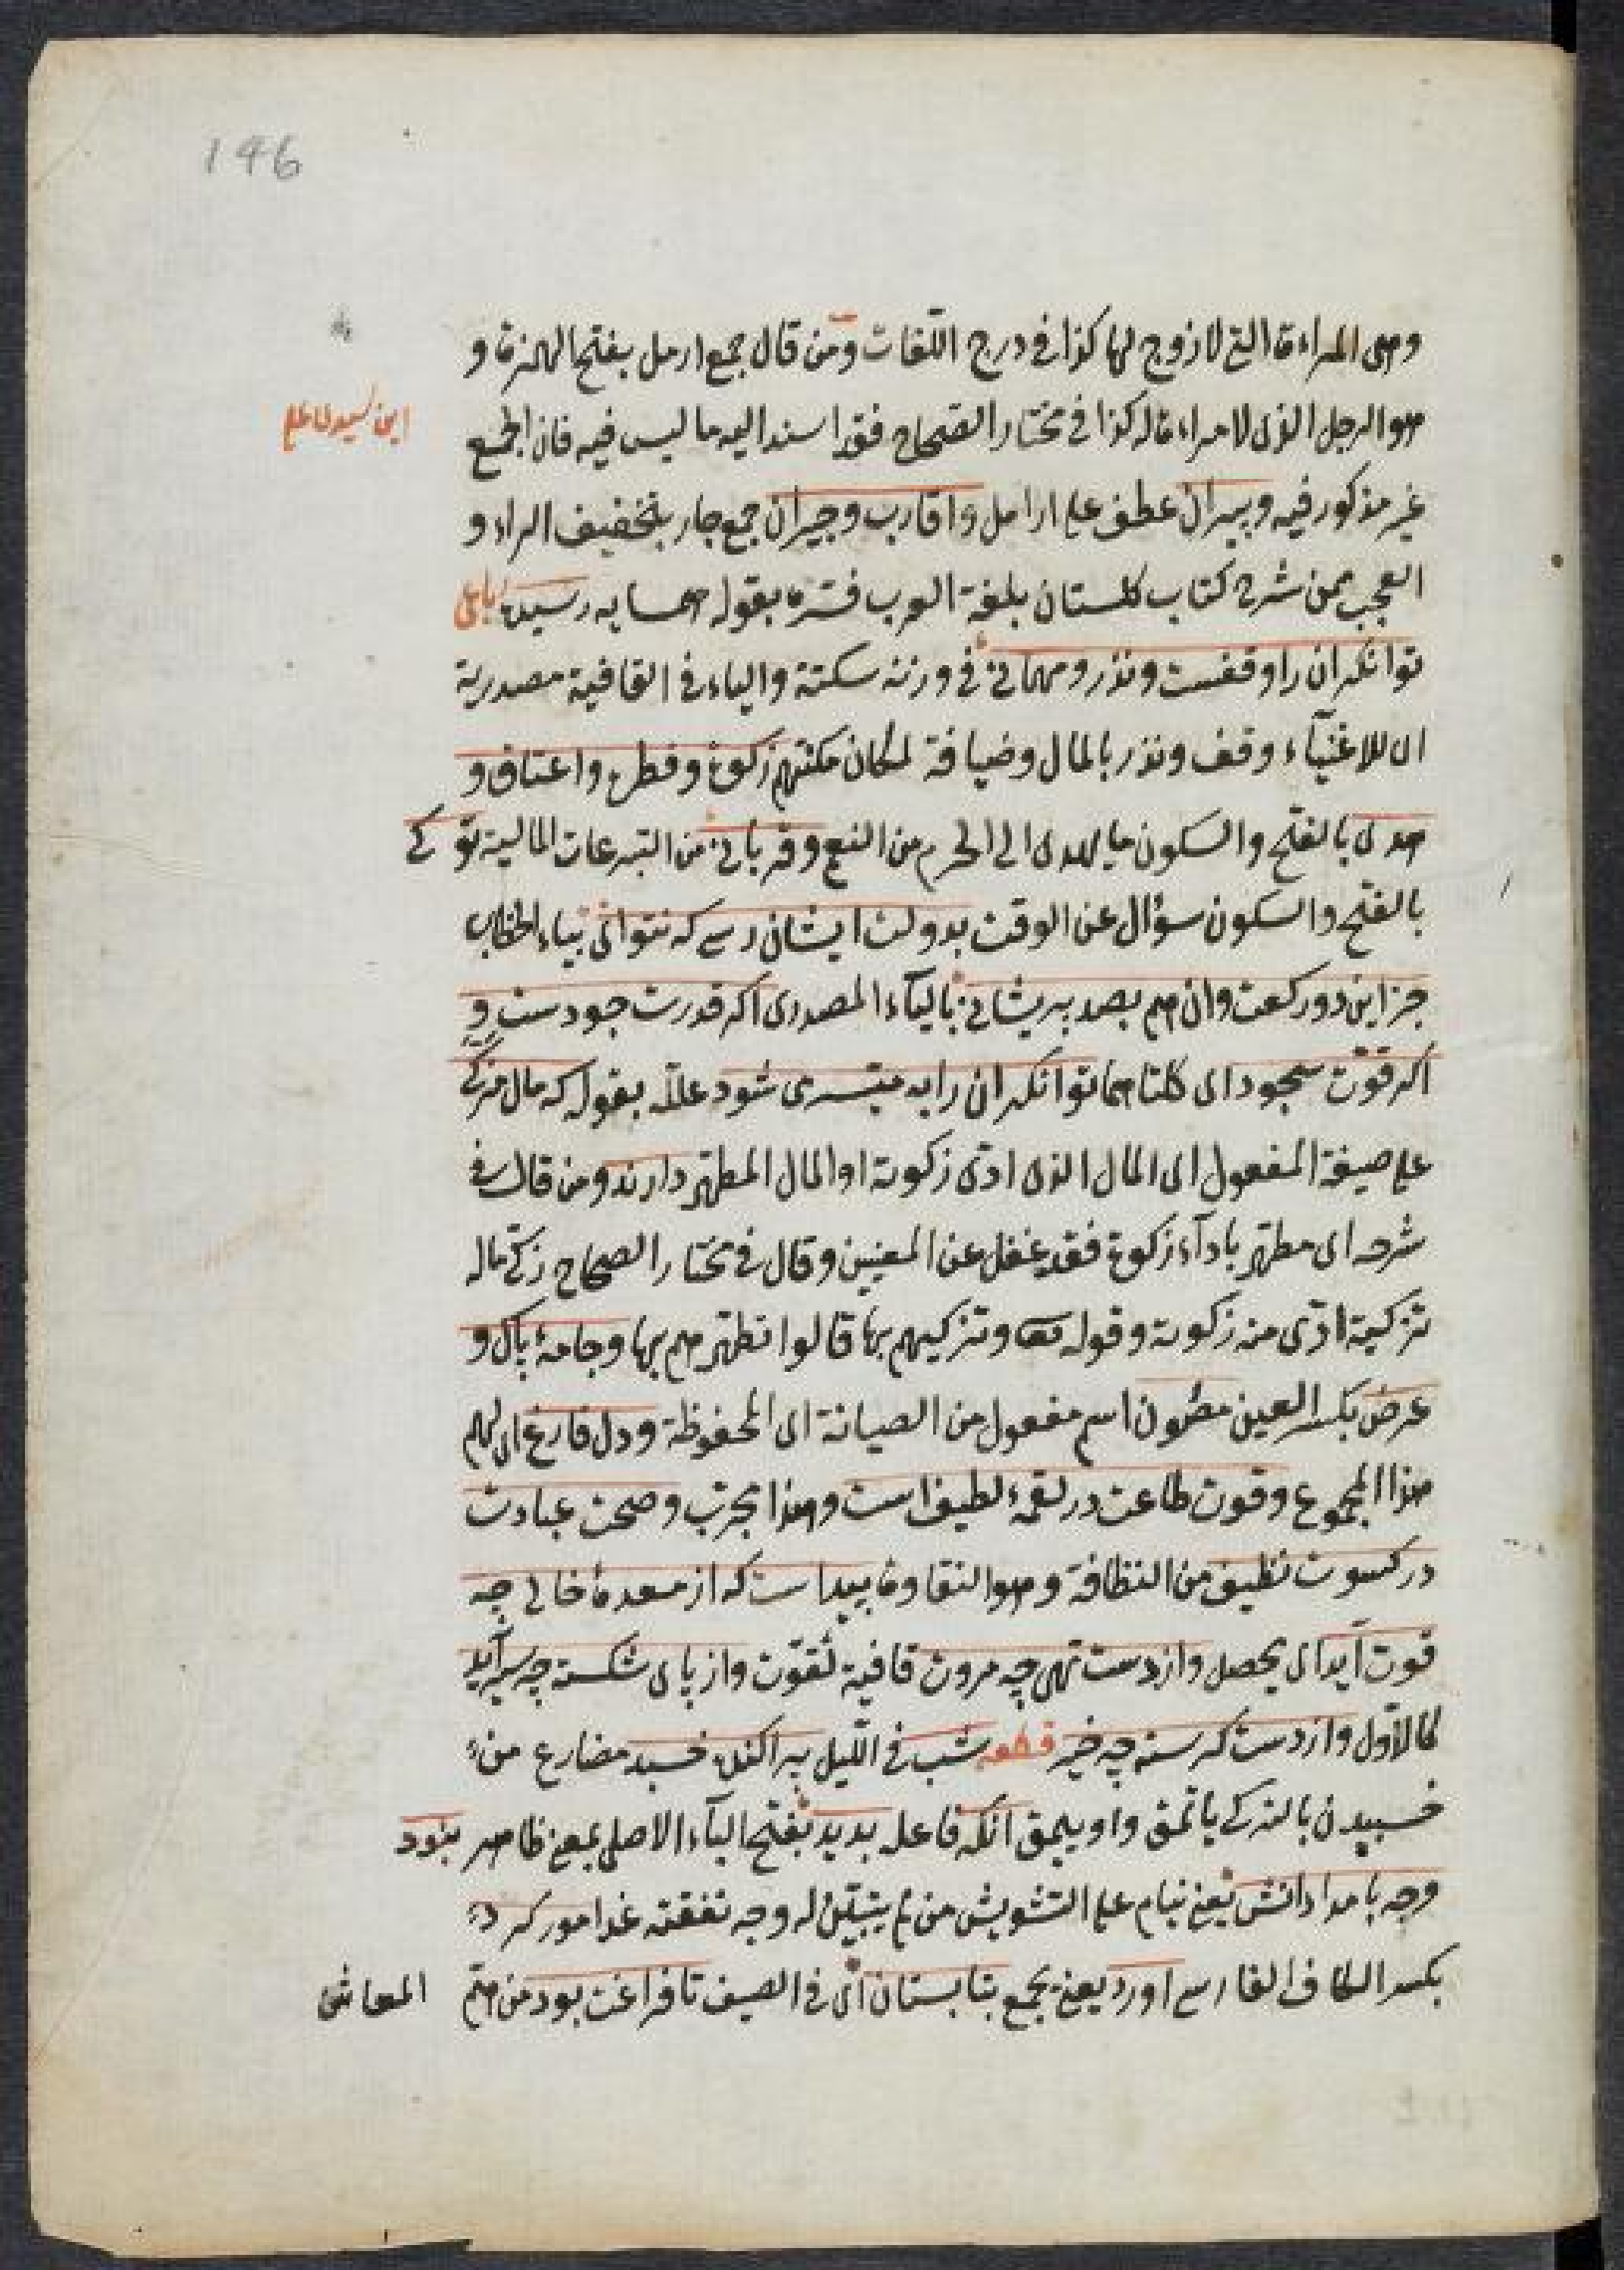 146
وهى المراءة التى لا زوج لها كذا فى درج اللغات ومن قال جمع ارمل بفتح الهمزة و
هو الرجل الذى لا امراءة له كذا فى مختار الصحاح فقد اسند اليه ما ليس فيه فان الجمع
ابن سيد على
غير مذكور فيه وپيران عطف على ارامل واقارب وجيران جمع جار بتخفيف الراء و
العجب ممن شرح كتاب كلستان بلغة العرب فسره بقوله همسايه رسيده
توانكران را وقفست ونذر ومهمانى فى وزنه سكتة والياء فى القافية مصدرية
اى للاغنياء وقف ونذر بالمال وضيافة لمكان مكنتهم زكوة وفطره واعتاق و
هدى بالفتح والسكون ما يهدى الى الحرم من النعم وقربانى من التبرعات المالية تو كى
بالفتح والسكون سؤال عن الوقت بدولت ايشان رسى كه نتوانى بياء الخطاب
جز اين دو ركعت وان هم بصد پريشانى بالياء المصدرى اكر قدرت جودست و
اكر قوت سجود اى كلتاهما توانكران را به ميسرى شود علله بقوله كه مال مزكى
على صيغة المفعول اى المال الذى ادى زكوته او المال المطهر دارند ومن قال فى
شرحه اى مطهر باداء زكوة فقد غفل عن المعنيين وقال فى مختار الصحاح زكى ماله
تزكية ادى منه زكوته وقوله تعا وتزكيهم بها قالوا تطهرهم بها وجامهء پاك و
عرض بكسر العين مصون اسم مفعول من الصيانة اى المحفوظة ودل فارغ اى لهم
هذا المجموع وقوت طاعت در لقمهء لطيف است وهذا مجرب وصحت عبادت
در كسوت نظيف من النظافة وهو النقاوة پيداست كه از معدهء خالى چه
قوت آيد اى يحصل واز دست تهى چه مروت قافية لقوت واز پاى شكسته چه سير آيد
كالاول واز دست كرسنه چه خير قطعه شب فى الليل پراكنده خسبد مضارع من
خسبيدن بالتركى ياتمق واويمق آنكه فاعله پديد بفتح الباء الاصلى بمعنى ظاهر نبود
وجه بامدادانش يعنى ينام على التشويش من لم يتبين له وجه نفقته غدا مور كرد
بكسر الكاف الفارسى اورد يعنى يجمع بتابستان اى فى الصيف تا فراغت بود من هم المعاش